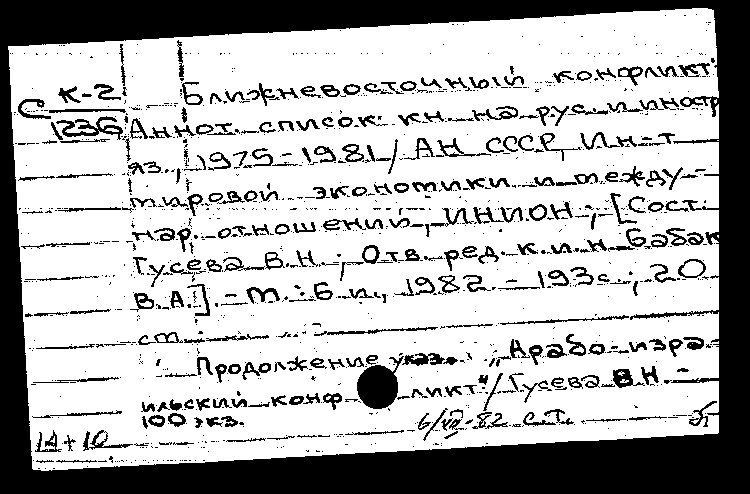 С К-2
1236
Ближневосточный конфликт:
Аннот. список кн. на рус. и иностр
яз., 1975-1981 / АН СССР, Ин-т
мировой экономики и между-
нар. отношений, ИНИОН; [Сост.
Гусева В.Н.; Отв. ред. к.и.н. Бабак
В.А.]. - М.: Б.и., 1982. - 193с.; 20
см.
Продолжение указ.: „Арабо-изра-
ильский конфликт" / Гусева В.Н. -
100 экз.
14+10
6/VII-82 С.Т.